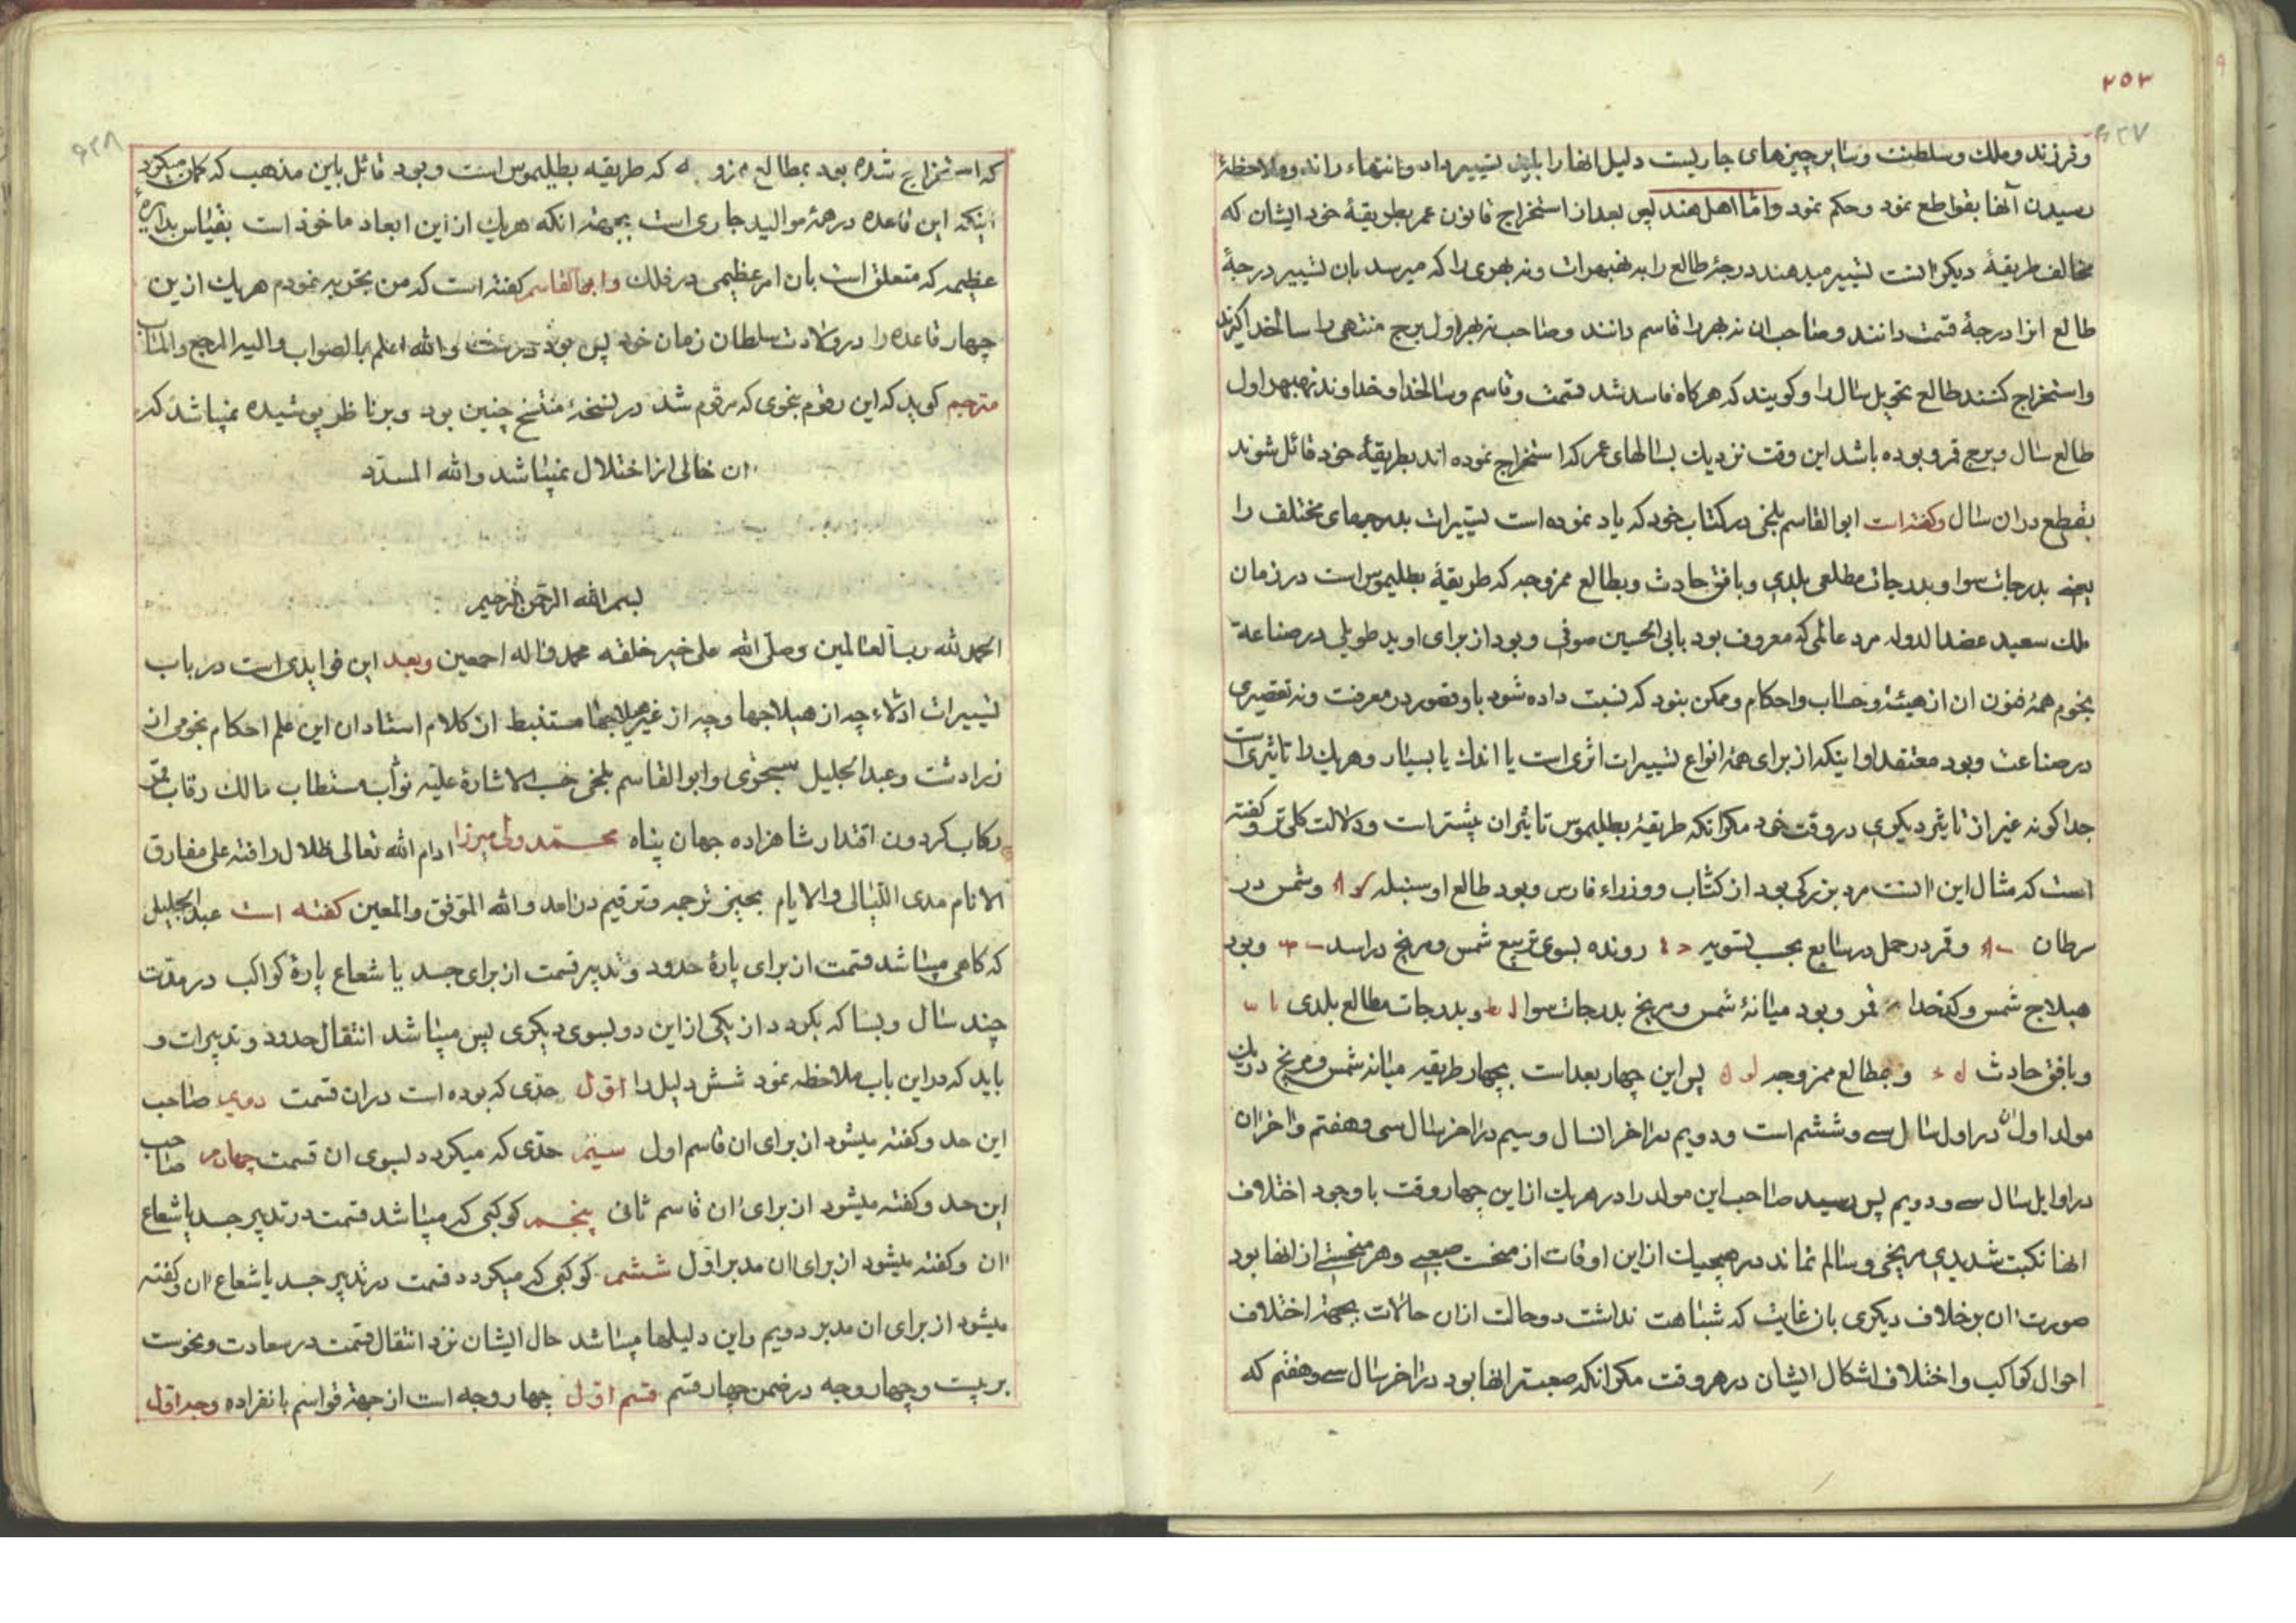 ٢٥٣
وفرزند وملك وسلطنت وسایر چیزهای جاریست دلیل انها را باید تسییر داد وانتهاء راند وملاحظهٔ
رسیدن آنها بقواطع نمود وحکم نمود واما اهل هند پس بعد از استخراج قانون عمر بطریقهٔ خود ایشان که
مخالف طریقهٔ دیکرانست تسییر میدهند درجهٔ طالع را به نهبهرات ونه بهری را که میرسد بان تسییر درجهٔ
طالع انرا درجهٔ قسمت دانند وصاحب ان نه بهر را قاسم دانند وصاحب نه بهر اول برج منتهی را سالخدا کیرند
واستخراج کنند طالع تحویل سال را وکویند که هرکاه فاسد شد قسمت وقاسم وسالخدا وخداوند نه بهر اول
طالع سال وبرج قمر وبوده باشد این وقت نزدیك بسالهای عمر که استخراج نموده اند بطریقهٔ خود قائل شوند
بقطع در ان سال وکفته است ابو القاسم بلخی در کتاب خود که یاد نموده است تسییرات بدرجهای مختلف را
یعنی بدرجات سوا وبدرجات مطلعی بلدی وبافق حادث وبطالع ممزوجه که طریقهٔ بطلیموس است در زمان
ملك سعید عضد الدوله مرد عالمی که معروف بود بابی الحسین صوفی وبود از برای او ید طویلی در صناعة
نجوم همهٔ فنون ان از هیئت وحساب واحکام وممکن بنود که نسبت داده شود باو قصور در معرفت ونه تقصیری
در صناعت وبود معتقد او اینکه از برای همهٔ انواع تسییرات اثری است یا اندك یا بسیار وهریك را تاثیری است
جداکونه غیر از تاثیر دیکری در وقت خود مکر انکه طریقهٔ بطلیموس تاثیر ان بیشتر است ودلالت کلی تر وکفته
است که مثال این انست مرد بزرکی بود از کتاب ووزراء فارس وبود طالع او سنبله وشمس در
سرطان وقمر در حمل در سابع بحسب تسویه رونده بسوی تربیع شمس ومریخ در اسد وبود
هیلاج شمس وکدخدا قمر وبود میانهٔ شمس ومریخ بدرجات سوا وبدرجات مطالع بلدی
وبافق حادث وبمطالع ممزوجه پس این چهار بعد است بچهار طریقه میانه شمس ومریخ در یك
مولد اول ان در اول سال سی وششم است ودویم در اخر انسال وسیم در اخر سال سی وهفتم واخر ان
در اوایل سال سی ودویم پس رسید صاحب این مولد را در هریك از این چهار وقت با وجود اختلاف
انها نکبت شدیدی مریخی وسالم نماند در هیچیك از این اوقات از منحست صعبی وهر منحستی از انها بود
صورت ان بر خلاف دیکری بان غایت که شباهت نداشت دو حالت از ان حالات بجهة اختلاف
احوال کواکب واختلاف اشکال ایشان در هر وقت مکر انکه صعبتر انها بود در اخر سال سی وهفتم که
که استخراج شده بود بمطالع که طریقه بطلیموس است وبود قائل باین مذهب که کمان میکرد
اینکه این قاعده در همهٔ موالید جاری است بجهة انکه هریك از این ابعاد ماخوذ است بقیاس بدایرهٔ
عظیمه که متعلق است بان امر عظیمی در فلك وابو القاسم کفته است که من تجربه نمودم هریك از ین
چهار قاعده را در ولادت سلطان زمان خود پس بود درست والله اعلم بالصواب والیه المرجع والمآب
مترجم کوید که این رقوم بنحوی که مرقوم شد در نسخهٔ منتسخ چنین بود وبر ناظر پوشیده نمیباشد که
ان خالی از اختلال نمیباشد والله المسدّد
بسم الله الرحمن الرحیم
الحمد لله رب العالمین وصلی الله علی خیر خلقه محمد واله اجمعین وبعد این فوایدی است در باب
تسییرات ادلاء چه از هیلاجها وچه از غیر هیلاجها مستنبط از کلام استادان این علم احکام نجومی از
زرادشت وعبد الجلیل سجزی وابو القاسم بلخی حسب الاشارهٔ علیّه نوّاب مستطاب مالك رقاب
رکاب کردون اقتدار شاهزاده جهان پناه محمّد ولی میرزا ادام الله تعالی ظلال رافته علی مفارق
الانام مدی اللیالی والایام بحیز ترجمه وترقیم در امد والله الموفق والمعین کفته است عبد الجلیل
که کاهی میباشد قسمت از برای پارهٔ حدود وتدبیر قسمت از برای جسد یا شعاع پارهٔ کواکب در مدّت
چند سال وبسا که بکردد از یکی از این دو بسوی دیکری پس میباشد انتقال حدود وتدبیرات و
باید که در این باب ملاحظه نمود شش دلیل را اوّل حدّی که بوده است در ان قسمت دویم صاحب
این حد وکفته میشود از برای ان قاسم اول سیّم حدّی که میکردد بسوی ان قسمت چهارم صاحب
این حد وکفته میشود از برای ان قاسم ثانی پنجم کوکبی که میباشد قسمت در تدبیر جسد یا شعاع
ان وکفته میشود از برای ان مدبر اوّل ششم کوکبی که میکردد قسمت در تدبیر جسد یا شعاع ان وکفته
میشود از برای ان مدبر دویم واین دلیلها میباشد حال ایشان نزد انتقال قسمت در سعادت ونحوست
بر بیست وچهار وجه در ضمن چهار قسم قسم اوّل چهار وجه است از جهة قواسم بانفراده وجه اوّل